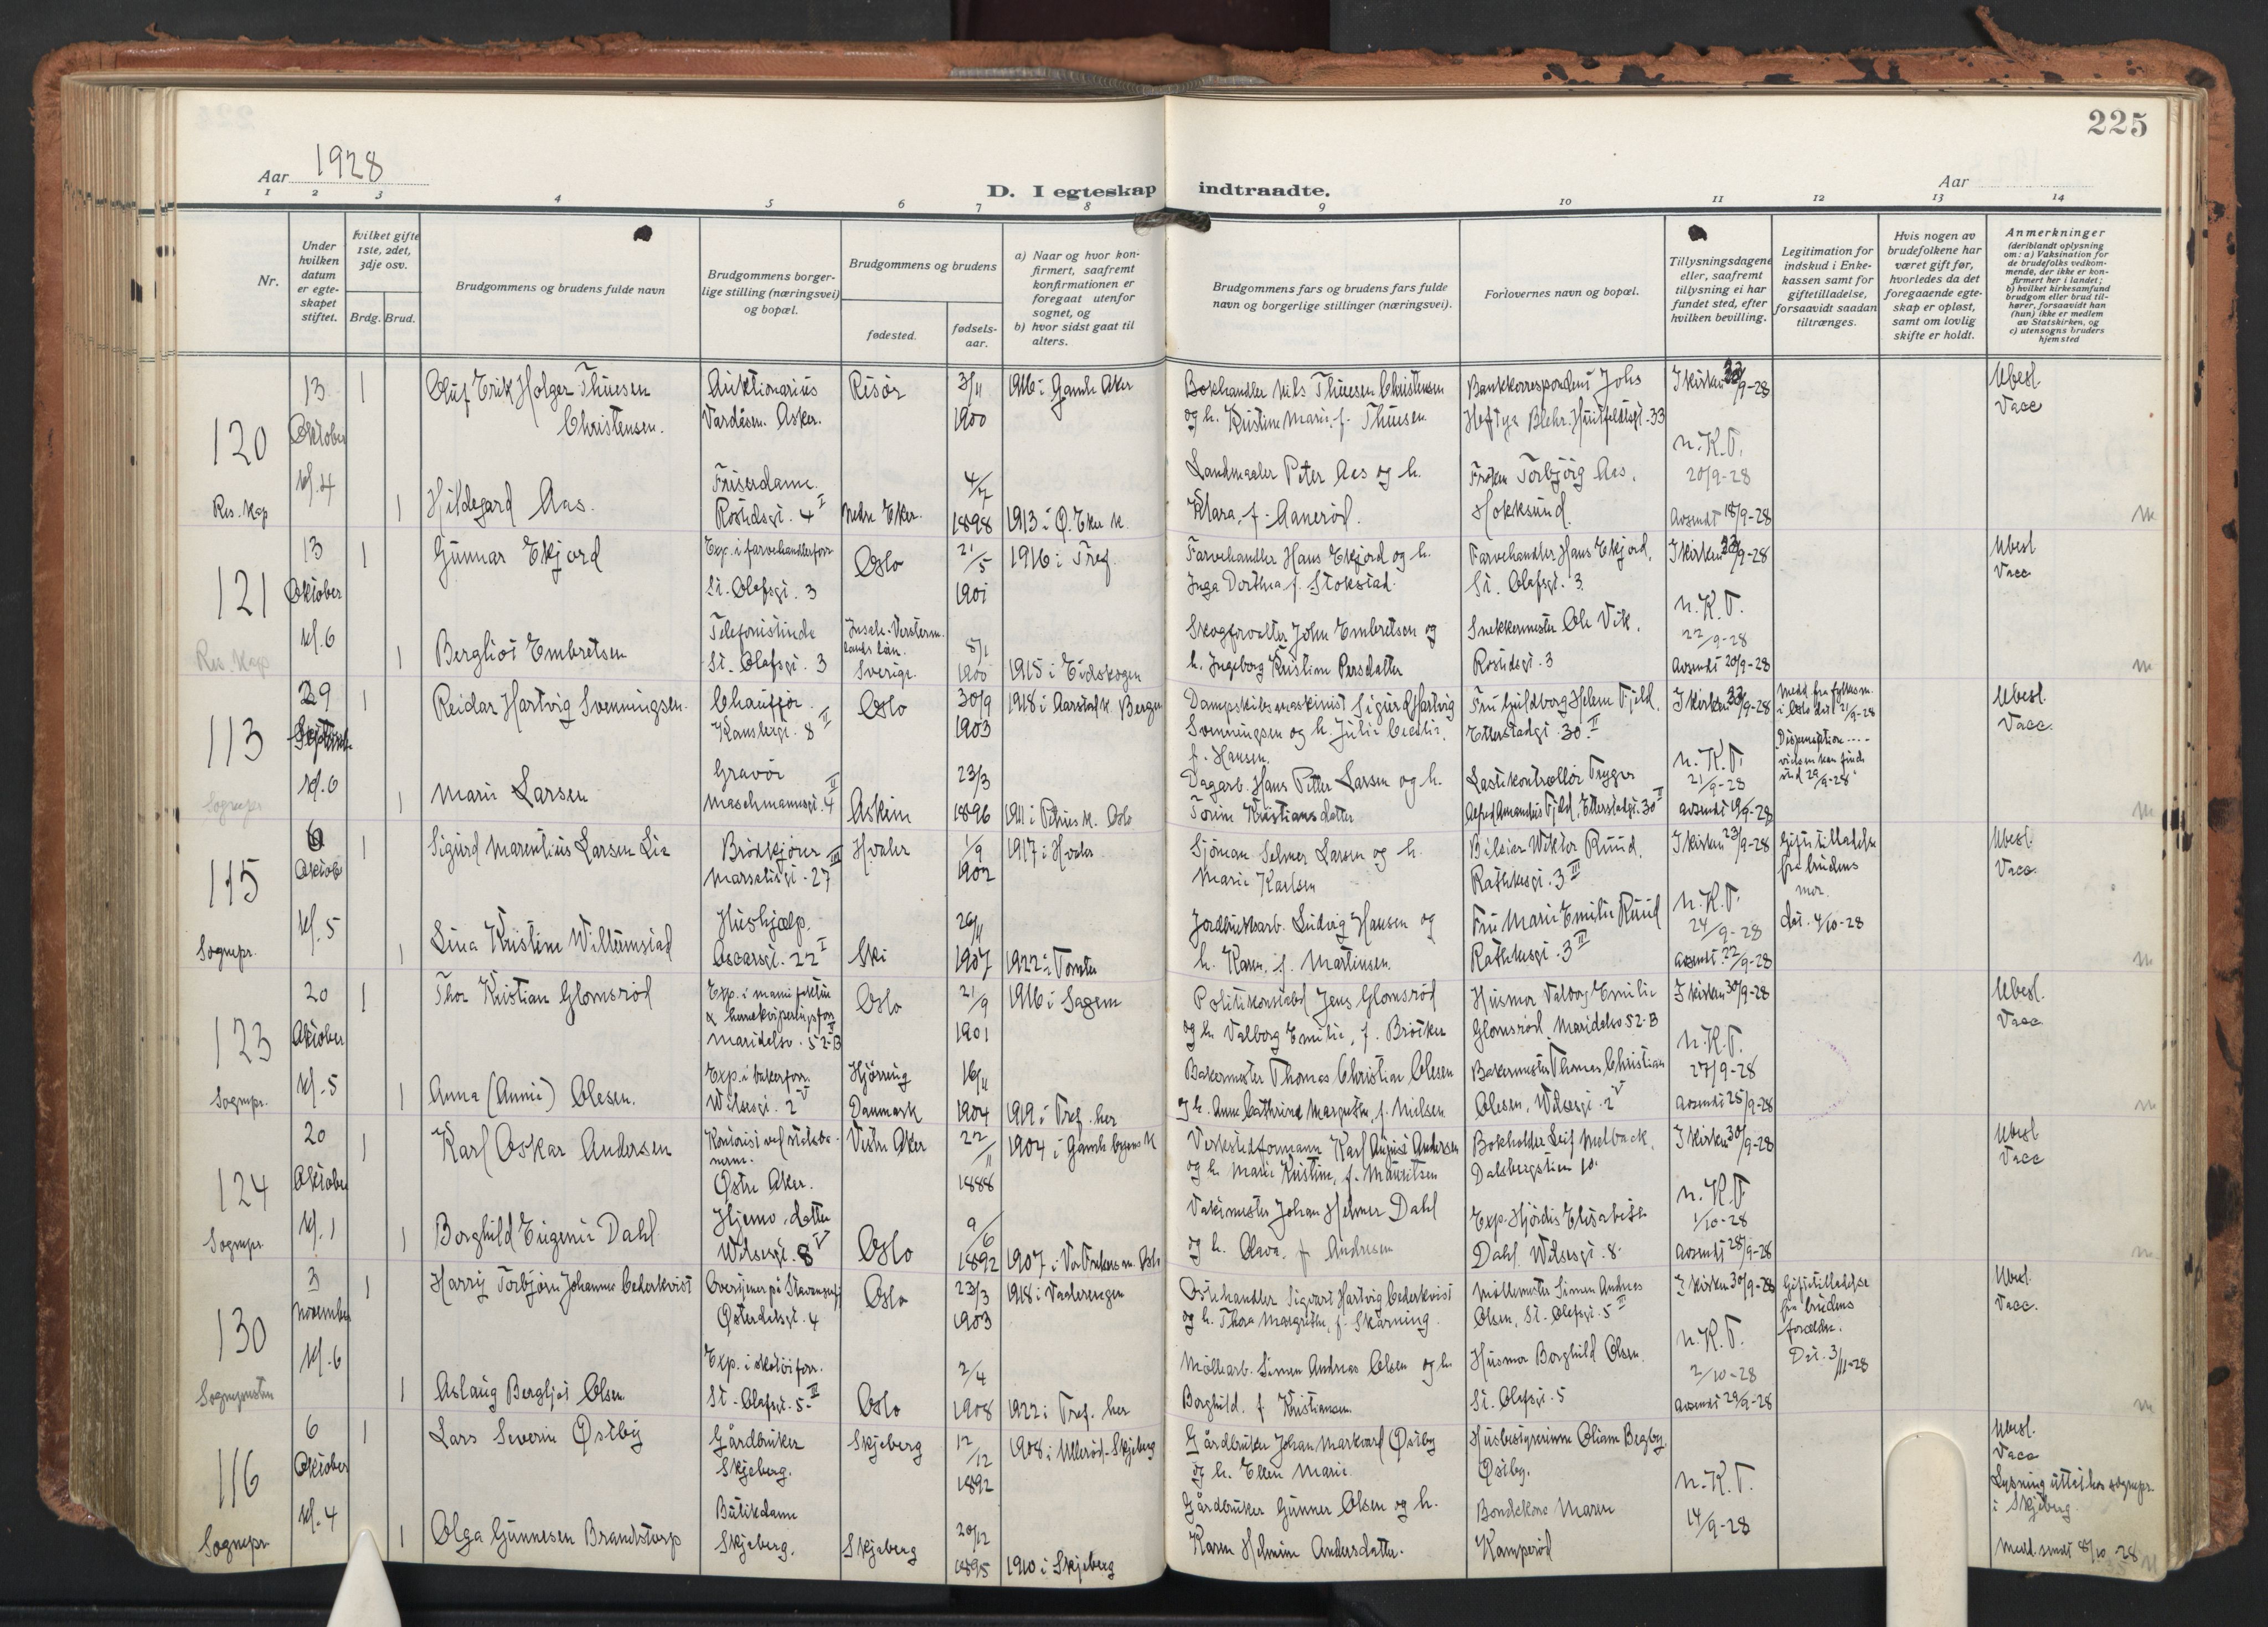 225
Aar 1928
D. I egteskap indtraadte.
Aar
1 2 3 4 5 6 7 8 9 10 11 12 13 14
Nr.
Under hvilken datum er egteskapet stiftet.
hvilket gifte 1ste, 2det, 3dje osv.
Brdg. Brud.
Brudgommens og brudens fulde navn
Brudgommens borgerlige stilling (næringsvei) og bopæl.
Brudgommens og brudens
fødested.
fødselsaar.
a) Naar og hvor konfirmert, saafremt konfirmationen er foregaat utenfor sognet, og
b) hvor sidst gaat til alters.
Brudgommens fars og brudens fars fulde navn og borgerlige stillinger (næringsvei).
Forlovernes navn og bopæl.
Tillysningsdagene eller, saafremt tillysning ei har fundet sted, efter hvilken bevilling.
Legitimation for indskud i Enkekassen samt for giftetilladelse, forsaavidt saadan tiltrænges.
Hvis nogen av brudefolkene har været gift før, hvorledes da det foregaaende egteskap er opløst, samt om lovlig skifte er holdt.
Anmerkninger
(deriblandt oplysning om: a) Vaksination for de brudefolks vedkommende, der ikke er konfirmert her i landet; b) hvilket kirkesamfund brudgom eller brud tilhører, forsaavidt han (hun) ikke er medlem av Statskirken, og c) utensogns bruders hjemsted
120
13 Oktober kl. 4
Res. Kap
1 Oluf Erik Holger Thuesen Christensen.
Auktionarius Vardåsen. Asker.
Risør 3/11 1900
1916 i Gamle Aker
Bokhandler Nils Thuesen Christensen og h. Kristine Marie f. Thuesen
Bankkorrespondent Johs Heftye Blehr. Huitfeldtsgt. 33
I kirken 23/9-28
Ubesl. Vacc
1 Hildegard Aas.
Friserdame. Rostedsgt. 4 I
Nedre Eker. 4/7 1898
1913 i Ø. Eker K.
Landmaaler Peter Aas og h. Klara, f. Aanerød.
Frøken Torbjørg Aas, Hokksund.
N.K.T. 20/9-28
Avsendt 18/9-28
121
13 Oktober kl. 6
Res. Kap
1 Gunnar Ekjord
Exp. i farvehandlerforr St. Olafsgt. 3
Oslo 21/5 1901
1916 i Tref.
Farvehandler Hans Ekjord og h. Inga Dorthea f. Stokstad.
Farvehandler Hans Ekjord, St. Olafsgt. 3
I kirken 23/9-28
Ubesl Vacc
1 Bergliot Embretsen
Telefonistinde St. Olafsgt. 3
Sverige. 8/1 1900
1915 i Eidskogen
Skogforvalter John Embretsen og h. Ingeborg Kristine Persdatter
Snekkermester Ole Vik, Rostedsgt. 3
N.K.T. 22/9-28
Avsendt 20/9-28
113
29 September kl. 6
Sognepr.
1 Reidar Hartvig Svenningsen.
Chauffør. 8 II
Oslo 30/9 1903
1918 i Aarstad K. Bergen
Dampskibsmaskinist Sigurd Hartvig Svenningsen og h. Julie Cecilie, f. Hansen.
Fru Guldborg Helene Fjeld, Etterstadgt. 30 II
I kirken 23/9-28
Medd. fra fylksm. i Oslo dat 21/9-28
Dispensation ---- vielsen kan finde sted 29/9-28.
Ubesl. Vacc.
1 Marie Larsen
Gravør Maschmannsgt. 4 II
Askim 23/3 1896
1911 i Petrus K. Oslo
Dagarb. Hans Petter Larsen og h. Torine Kristiansdatter
Lastekontrollør Trygve Alfred Amandus Fjeld, Etterstadgt. 30 II
N.K.T. 21/9-28
Avsendt 19/9-28
115
6 Oktob kl. 5
Sognepr.
1 Sigurd Marentius Larsen Lie
Brødkjører Marselisgt. 27 III
Hvaler 1/9 1902
1917 i Hvaler
Sjømann Selmer Larsen og h. Marie Karlsen
Bileier Wiktor Ruud, Rathkesgt. 3 III
I kirken 23/9-28
Giftetilladelse fra brudens mor. dat. 4/10-28
Ubesl. Vacc.
1 Lina Kristine Willumstad
Hushjælp. Oscarsgt. 22 I
Ski 26/11 1907
1922 i Tomter
Jordbruksarb. Ludvig Hansen og h. Karen, f. Martinsen.
Fru Marie Emilie Ruud Rathkesgt. 3 II
N.K.T. 24/9-28
Avsendt 22/9-28
123
20 Oktober kl. 5
Sognepr.
1 Thor Kristian Glomsrød
Maridalsv. 52-B
Oslo 21/9 1901
1916 i Sagene
Politikonstabel Jens Glomsrød og h. Valborg Emilie, f. Brøtker
Husmor Valborg Emilie Glomsrød, Maridalsv 52-B
I kirken 30/9-28
Ubesl. Vacc
1 Anna (Annie) Olesen.
Exp. i bakerforr. Wilsesgt. 2 V
Hjørring Danmark 16/11 1904
1919 i Tref. her
Bakermester Thomas Christian Olesen og h. Anne Cathrine Margrethe, f. Nielsen
Bakermester Thomas Christian Olesen, Wilsesgt. 2 V
N.K.T. 27/9-28
Avsendt 25/9-28
124
20 Oktober kl. 1
Sognepr.
1 Karl Oskar Andersen
Kontorist ved statsbanerne. Østre Aker.
Vestre Aker 22/11 1888
1904 i Gamlebyens K
Verkstedformann Karl August Andersen og h. Marie Kristine, f. Mauritsen
Bokholder Leif Melback, Dalsbergstien 10.
I kirken 30/9-28
Ubesl Vacc
1 Borghild Eugenie Dahl
Hjemv. datter Wilsesgt. 8 V
Oslo 9/6 1892
1907 i Vor Frelsers m. Oslo
Vaktmester Johan Helmer Dahl og h. Olava, f. Andresen
Exp. Hjørdis Elisabeth Dahl. Wilsesgt. 8.
N.K.T 1/10-28
Avsendt 28/9-28
130
3 November kl. 6
Sognepresten
1 Harry Torbjørn Johannes Cederkvist
Østerdalsgt. 4
Oslo 23/3 1903
1918 i Vaalerengen
Ostehandler Sigvart Hartvig Cederkvist og h. Thora Margrethe, f. Skarning.
Møllemester Simen Andreas Olsen, St. Olafsgt. 5 III
I kirken 30/9-28
Giftetilladelse fra brudens forældre. Dat. 3/11-28
Ubesl. Vacc.
1 Aslaug Bergliot Olsen
Exp. i skotøiforr. St. Olafsgt. 5 III
Oslo 2/4 1908
1922 i Tref. her
Møllearb. Simen Andreas Olsen og h. Borghild, f. Kristiansen.
Husmor Borghild Olsen. St. Olafsgt. 5
N.K.T. 2/10-28
Avsendt 29/9-28
116
6 Oktober kl. 4
Sognepr
1 Lars Severin Østby
Gårdbruker Skjeberg.
Skjeberg 12/12 1892
1908 i Ullerød-Skjeberg
Gårdbruker Johan Markvard Østby og h. Ellen Marie
Husbestyrerinne Oliane Begby, Østby.
Ubesl. Vacc
Lysning uttat hos sognepr. i Skjeberg.
1 Olga Gunnesen Brandstorp
Butikdame Skjeberg.
Skjeberg 20/12 1895
1910 i Skjeberg
Gårdbruker Gunner Olsen og h. Karen Helmine Andersdatter.
Bondekone Maren Kamperød
N.K.T. 14/9-28
Medd. sendt 8/10-28